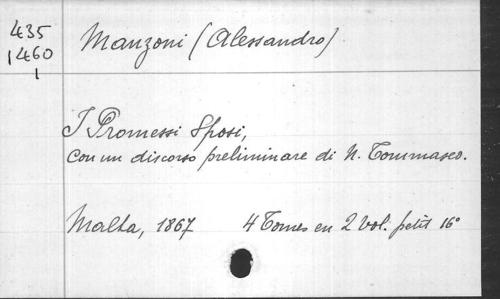 435
1460
1
Manzoni (Alessandro)
I Promessi Sposi,
con un discorso preliminare di N. Tommaseo.
Malta, 1867 4 Tomes en 2 Vol. petit 16°